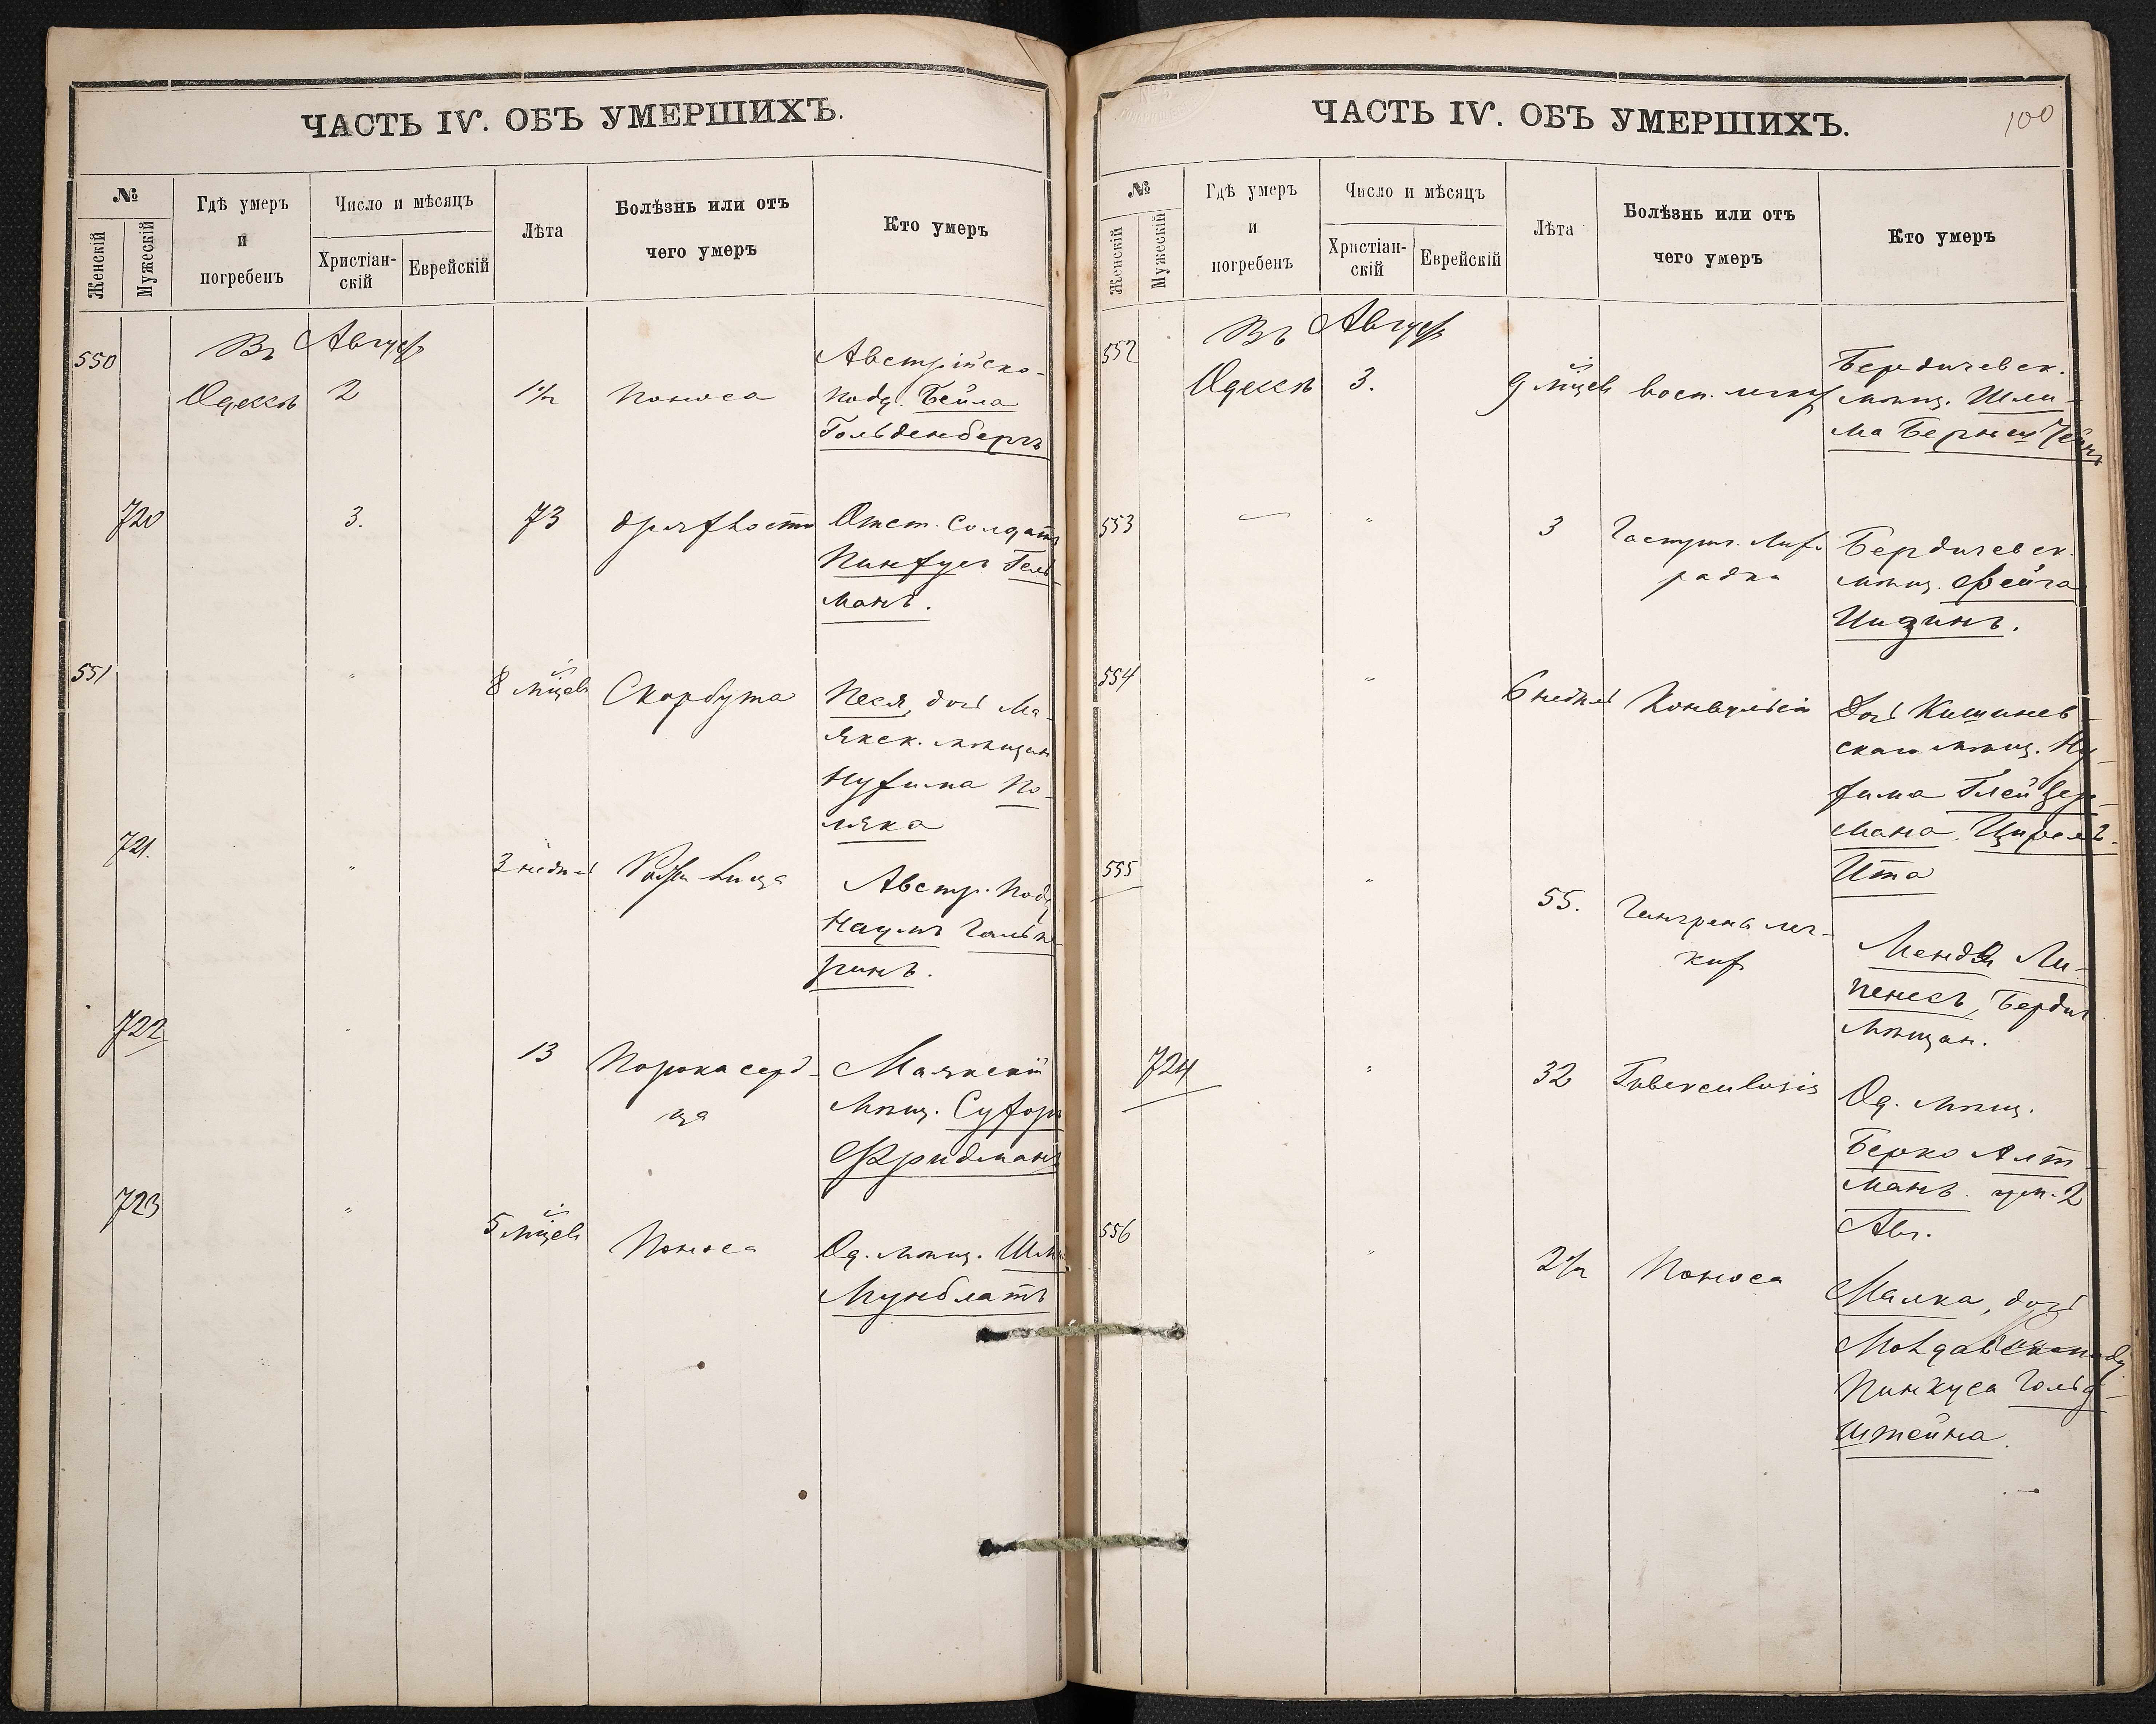 ЧАСТЬ IV. ОБЪ УМЕРШИХЪ.
№
Женскій
Мужескій
Гдѣ умеръ
и
погребенъ
Число и мѣсяцъ
Христіан-
скій
Еврейскій
Лѣта
Болѣзнь или отъ
чего умеръ
Кто умеръ
Въ Август
550 Одессѣ 2 1½ Поноса Австрійско-
подд. Бейла
Гольденбергъ
720 3. 73 дряхлости Отст. Солдатъ
Пинхусъ Гель-
манъ.
551 " 8 мѣсyes Скорбута Песя, дочь Ма-
якск. мѣщан
Нухима По-
ляка
721. " 3 недѣл Австр. подд
Наумъ Гальпе-
ринъ.
722 " 13 Порока серд- Маякскій
ца мѣщ. Сухоръ
Фридманъ
723 " 5 мѣсц Поноса Од. мѣщ.
Мунблатъ
ЧАСТЬ IV. ОБЪ УМЕРШИХЪ.
100
№
Женскій
Мужескій
Гдѣ умеръ
и
погребенъ
Число и мѣсяцъ
Христіан-
скій
Еврейскій
Лѣта
Болѣзнь или отъ
чего умеръ
Кто умеръ
Въ Август
552 Одессѣ 3. 9 мѣсц восп. легк Бердичевск.
мѣщ. Шли-
ма Бернштейнъ
553 — " 3 Гастрич. Лихо- Бердичевск.
радка мѣщ. Фейга
Цидинъ.
554 " 6 недѣль Конвульсіи Дочь Кишинев-
скаго мѣщ. Ну-
хима Глейзер-
мана Ципель-
Ита
555 " 55. Гангрена лег-
кихъ Мендя Ли-
пенесъ, Бердич
мѣщан.
724 " 32 Tuberculosis Од. мѣщ.
Берко Алт-
манъ. ум. 2
Авг.
556 " 2½ Поноса Малка, дочь
Молдавскоподд
Пинкуса Гольд-
штейна.